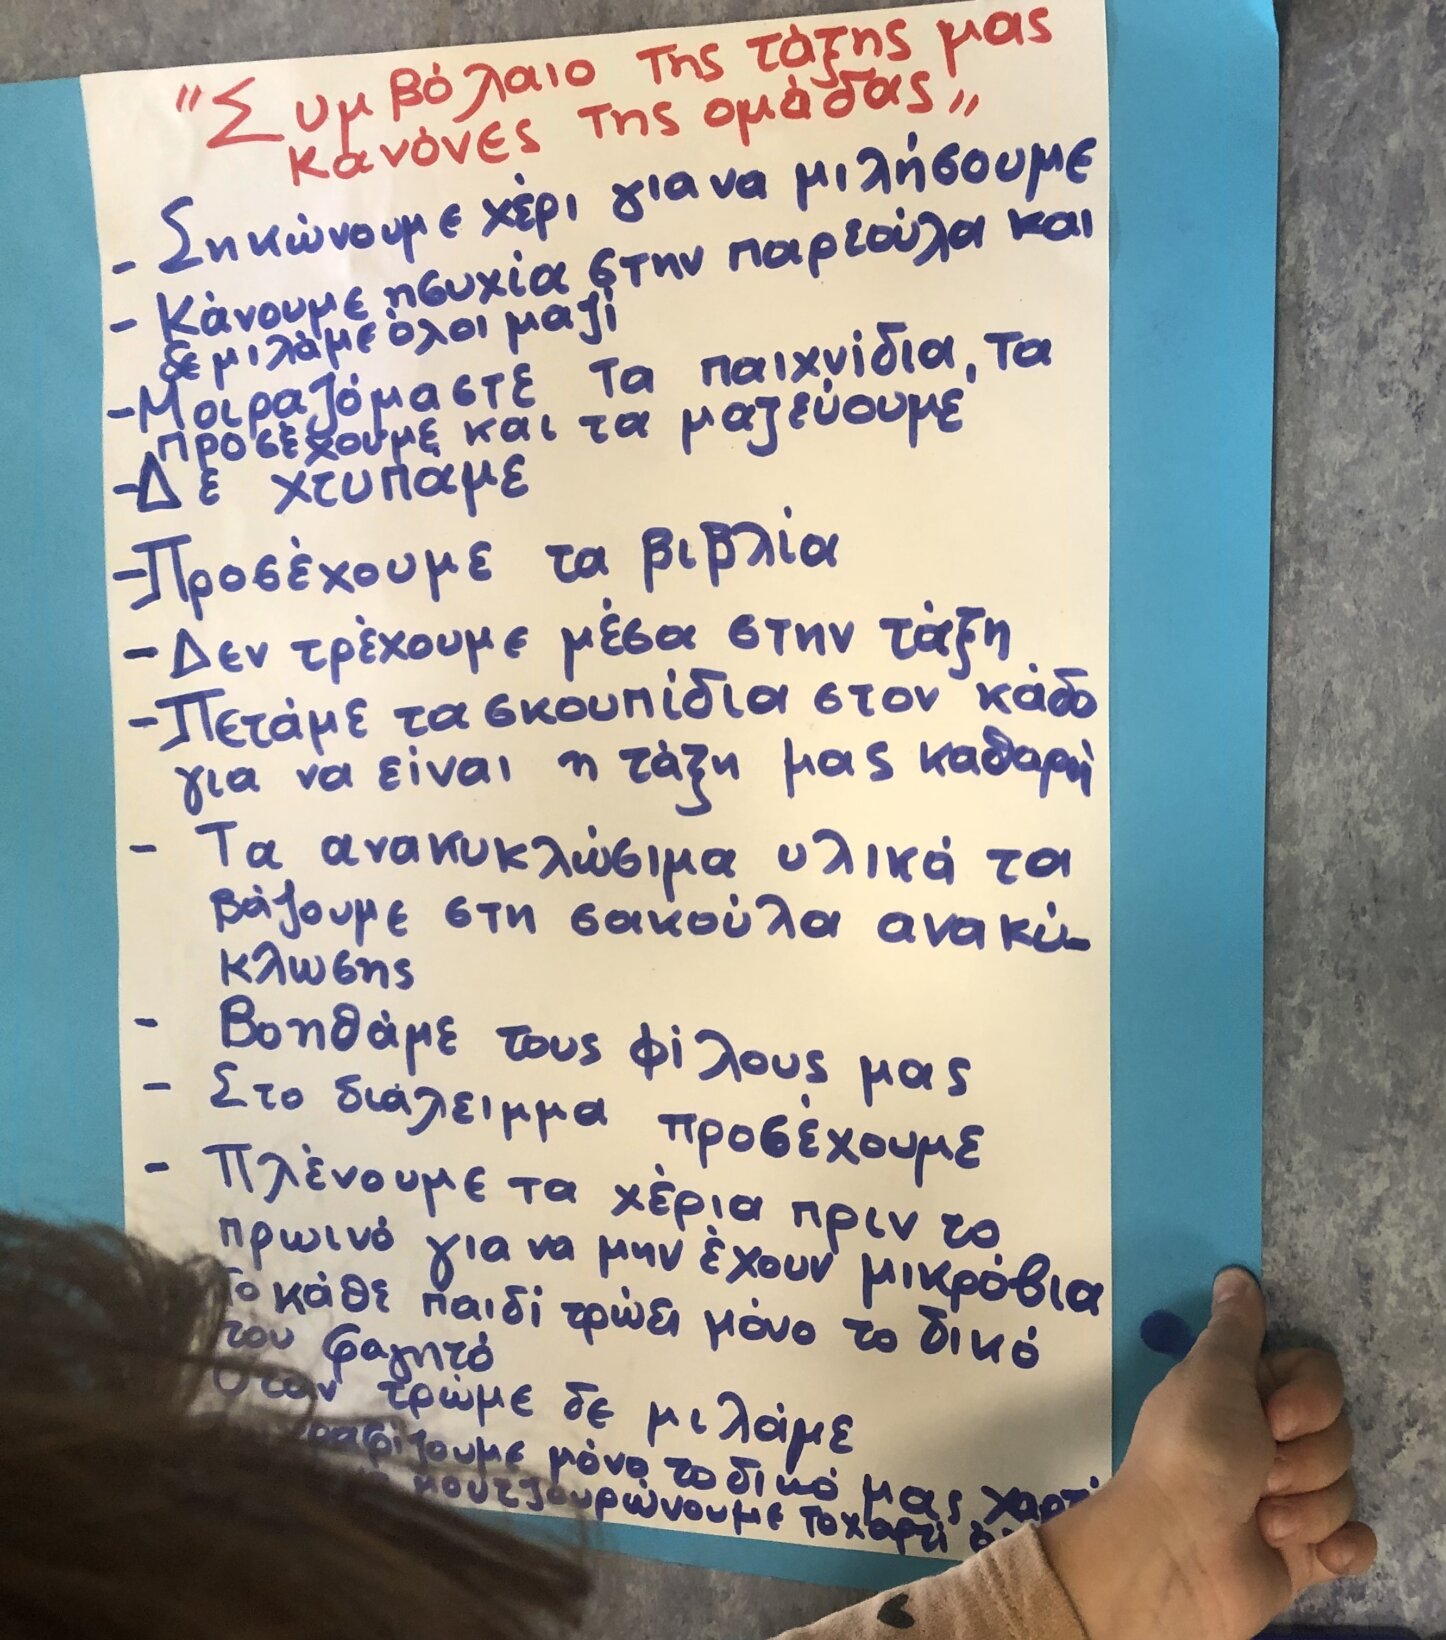 "Συμβόλαιο της τάξης μας
κανόνες της ομάδας„
- Σηκώνουμε χέρι για να μιλήσουμε
- Κάνουμε ησυχία στην παρεούλα και
δε μιλάμε όλοι μαζί
- Μοιραζόμαστε τα παιχνίδια, τα
προσέχουμε και τα μαζεύουμε
- Δε χτυπάμε
- Προσέχουμε τα βιβλία
- Δεν τρέχουμε μέσα στην τάξη
- Πετάμε τα σκουπίδια στον κάδο
για να είναι η τάξη μας καθαρή
- Τα ανακυκλώσιμα υλικά τα
βάζουμε στη σακούλα ανακύ-
κλωσης
- Βοηθάμε τους φίλους μας
- Στο διάλειμμα προσέχουμε
- Πλένουμε τα χέρια πριν το
πρωινό για να μην έχουν μικρόβια
Το κάθε παιδί τρώει μόνο το δικό
του φαγητό
Όταν τρώμε δε μιλάμε
μόνο το δικό μας χαρτί
μουτζουρώνουμε το χαρτί